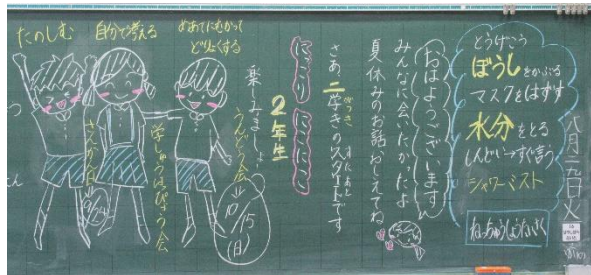 八月二九日火
とうげこう
ぼうしをかぶる
マスクをはずす
水分をとる
しんどい→すぐ言う
シャワーミスト
ねっちゅうしょうたいさく
おはようございます
みんなに会いたかったよ
夏休みのお話おしえてね
さあ二学きのスタートです
にっこり にこにこ
2年生
楽しみましょう
うんどう会
10/15
(日)
学しゅうはっぴょう会
さんかん日
めあてにむかって
どりょくする
自分で考える
たのしむ